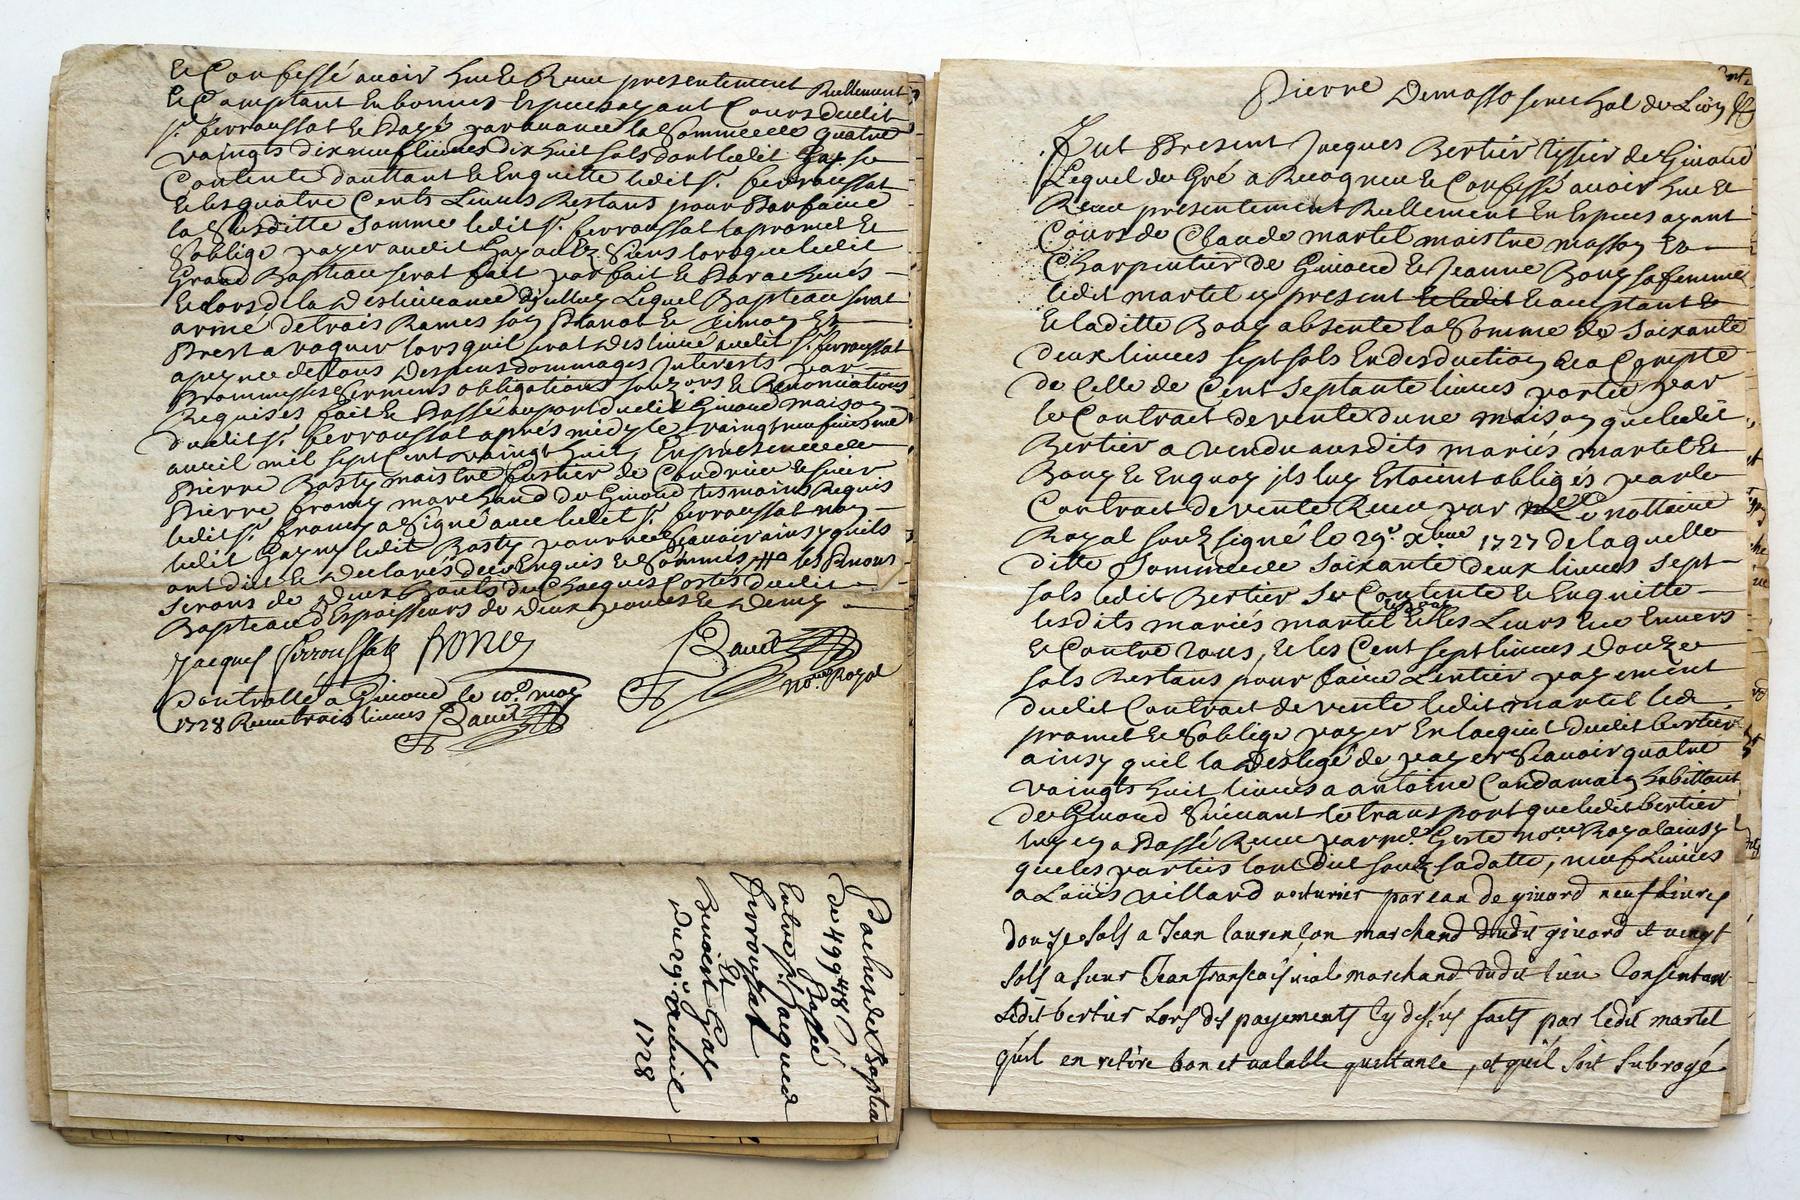 & Confessé avoir heu & Receu presentement Reellement
& Comptant En bonnes Especes ayant Cours dudit
sr. ferroussat & Payé par avance la Somme de quatre
vaingts dix neuf livres dix huit sols dont ledit Gay se
Contente d'auttant & Enquitte ledit sr. ferroussat
& les quatre Cents Livres Restans pour Parfaire
la Susditte Somme ledit sr. ferroussat la promet &
S'oblige payer audit Gay ou Ez Siens lorsque ledit
Grand Bapteau serat fait parfait & Parachevés
& lors de la Deslivrance d'jcelluy Lequel Bapteau serat
armé de trois Rames son Planat & timon Et
Prest a voguer lorsquil serat deslivré audit sr. ferroussat
a peyne de tous Despens dommages Interets par
Prommesses Sermens obligations soubzons & Renonciations
Requises fait & Passé au port dudit Givord maison
dudit sr. ferroussat apres midy le vaingt neufviesme
avril mil sept Cent vaingt huit, En presence de
Pierre Basty maistre fustier de Condrieu & sieur
Pierre francy marchand de Givord tesmoins Requis
ledit sr. francy a Signé avec ledit sr. ferroussat non
ledit Gay ny ledit Basty pour ne Scavoir ainsy quils
ont dit & Declarés de ce Enquis & Sommés les
Serons de Deux Chacques Costés dudit
Bapteau d'Espaisseurs de Deux pouces & Demy
Jacques ferroussat
Baud
nore. Royal
Controllé a Givord le 10e. may
1728 Receu trois livres Baud
Bapteau
de 499 ₶ 18 s
Passé
Entre sr. Jacques
ferroussat
Et
Benoiert Gay
Du 29e. avril
1728
Pierre Demasso senechal de Lion
Fut Present Jacques Bertier tissier de Givord
Lequel de Gré a Recogneu & Confessé avoir heu &
Receu presentement Reellement En Especes ayant
Cours de Claude martel maistre masson Et
Charpentier de Givord & Jeanne Bouy sa femme
ledit martel cy present & ledit & acceptant &
& laditte Bouy absente la Somme de Soixante
deux livres sept sols En desduction & a Compte
de Celle de Cent Septante livres portée par
le Contrat de vente d'une maison que ledit
Bertier a vendu ausdits mariés martel Et
Bouy & Enquoy jls luy Estoient obligés par le
Contrat de vente Receu par Le nottaire
Royal soubz signé le 29e. xbre 1727 de laquelle
ditte Somme de Soixante deux livres sept
sols ledit Bertier se Contente & Enquitte
lesdits mariés martel & les Leurs & Envers
& Contre tous, & les Cent sept livres douze
sols Restans pour faire L'entier payement
dudit Contrat de vente ledit martel les
promet & S'oblige payer En l'acquit dudit bertier
ainsy quil la Deslegé de payer Scavoir quatre
vaingts huit livres a antoine Condamain habittant
de Givord Suivant le transport que ledit bertier
luy en a Passé Receu par me. Geste nore. Royal ainsy
que les parties l'ont dit soubz sa datte, neuf Livres
a Louis villard voiturier par eau de givord neuf livres
douze sols a Jean laurençon marchand dudit givord et vingt
sols a sieur Jean françois vial marchand dudit lieu Consentant
Ledit bertier Lors des payements Cy dessus faits par ledit martel
qu'il en retire bon et valable quittance, et quil soit subrogé